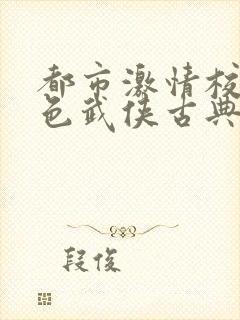 都市激情校
色武侠古典
段俊